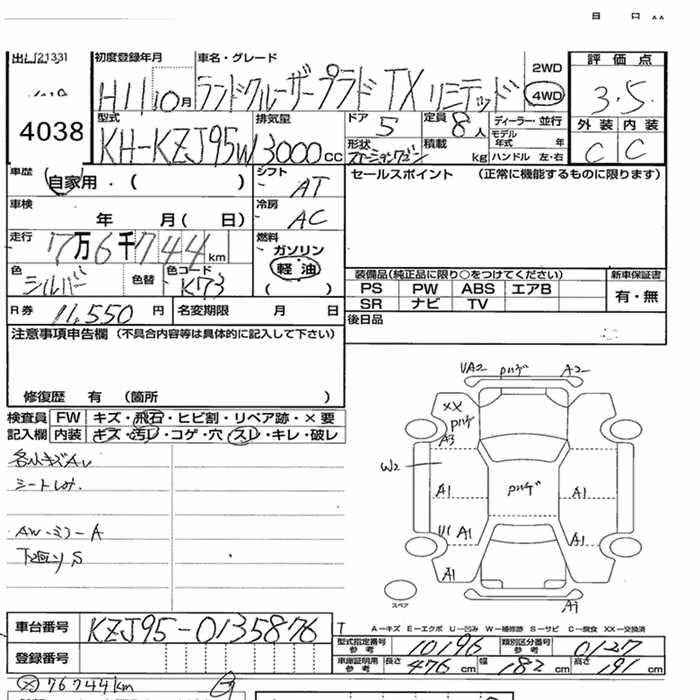 出品 21331
4038
初度登録年月 車名・グレード
H11 10月 ランドクルーザープラド TX リミテッド
2WD
4WD
評価点
3.5
外装 内装
C C
型式 排気量 ドア 定員 ディーラー・並行
KH-KZJ95W 3000cc 5 8人
モデル年式 年
形状 ステーションワゴン 積載 kg ハンドル 左・右
車歴 自家用・( )
シフト AT
車検 年 月( 日)
冷房 AC
走行 7万6千744km
燃料 ガソリン
軽油
( )
色 シルバー 色替 色コード K73
R券 11,550円 名変期限 月 日
セールスポイント (正常に機能するものに限ります)
装備品(純正品に限り○をつけてください) 新車保証書
PS PW ABS エアB 有・無
SR ナビ TV
後日品
注意事項申告欄(不具合内容等は具体的に記入して下さい)
修復歴 有 (箇所 )
検査員記入欄 FW キズ・飛石・ヒビ割・リペア跡・×要
内装 キズ・汚レ・コゲ・穴・スレ・キレ・破レ
シートしみ
AW・ミラーA
下廻りS
UA2 A2
XX
A3
W2
A1 A1
U1 A1 A1
A1
A1
スペア
A-キズ E-エクボ U-凹み W-補修跡 S-サビ C-腐食 XX-交換済
車台番号 KZJ95-0135876
登録番号
型式指定番号 参考 10196 類別区分番号 参考 0127
車庫証明用 参考 長さ 476cm 幅 182cm 高さ 191cm
76744km